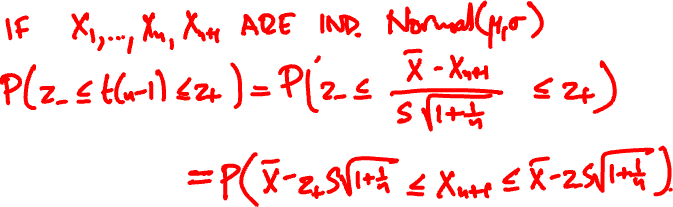 IF X₁,..., Xₙ, Xₙ₊₁ ARE IND. Normal(μ,σ)
P(z₋ ≤ t(n-1) ≤ z₊) = P(z₋ ≤ (X̄ - Xₙ₊₁)/(S √(1+1/n)) ≤ z₊)
= P(X̄ - z₊S√(1+1/n) ≤ Xₙ₊₁ ≤ X̄ - zS√(1+1/n)).